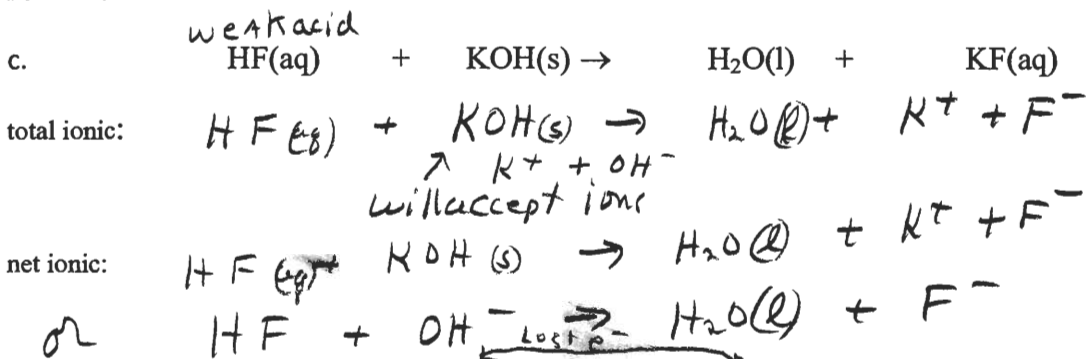 weak acid
c. HF(aq) + KOH(s) → H₂O(l) + KF(aq)
total ionic: HF(aq) + KOH(s) → H₂O(l) + K⁺ + F⁻
↗ K⁺ + OH⁻
will accept ions
net ionic: HF(aq) + KOH(s) → H₂O(l) + K⁺ + F⁻
or HF + OH⁻ → H₂O(l) + F⁻
Lost e⁻